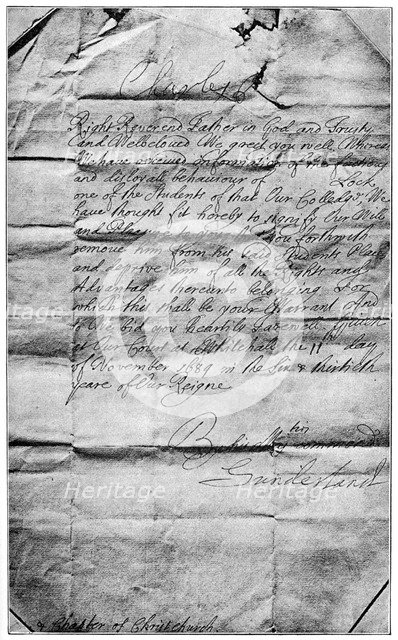 Charles R
Right Reverend Father in God and Trusty
and Welbeloved We greet you well. Whereas
We have received information of the factious
and disloyall behaviour of Lock
one of the Students of that Our Colledge, We
have thought fit hereby to signify Our Will
and Pleasure to you forthwith
remove him from his said Students Place
and deprive him of all the Rights and
Advantages thereunto belonging For
which this shall be your Warrant And
so We bid you heartily Farewell Given
at Our Court at Whitehall the 11th day
of November 1684 in the Six & thirtieth
yeare of Our Reigne
By his Maties Command
Sunderland
& Chapter of Christchurch
Heritage
Heritage
Heritage
Heritage